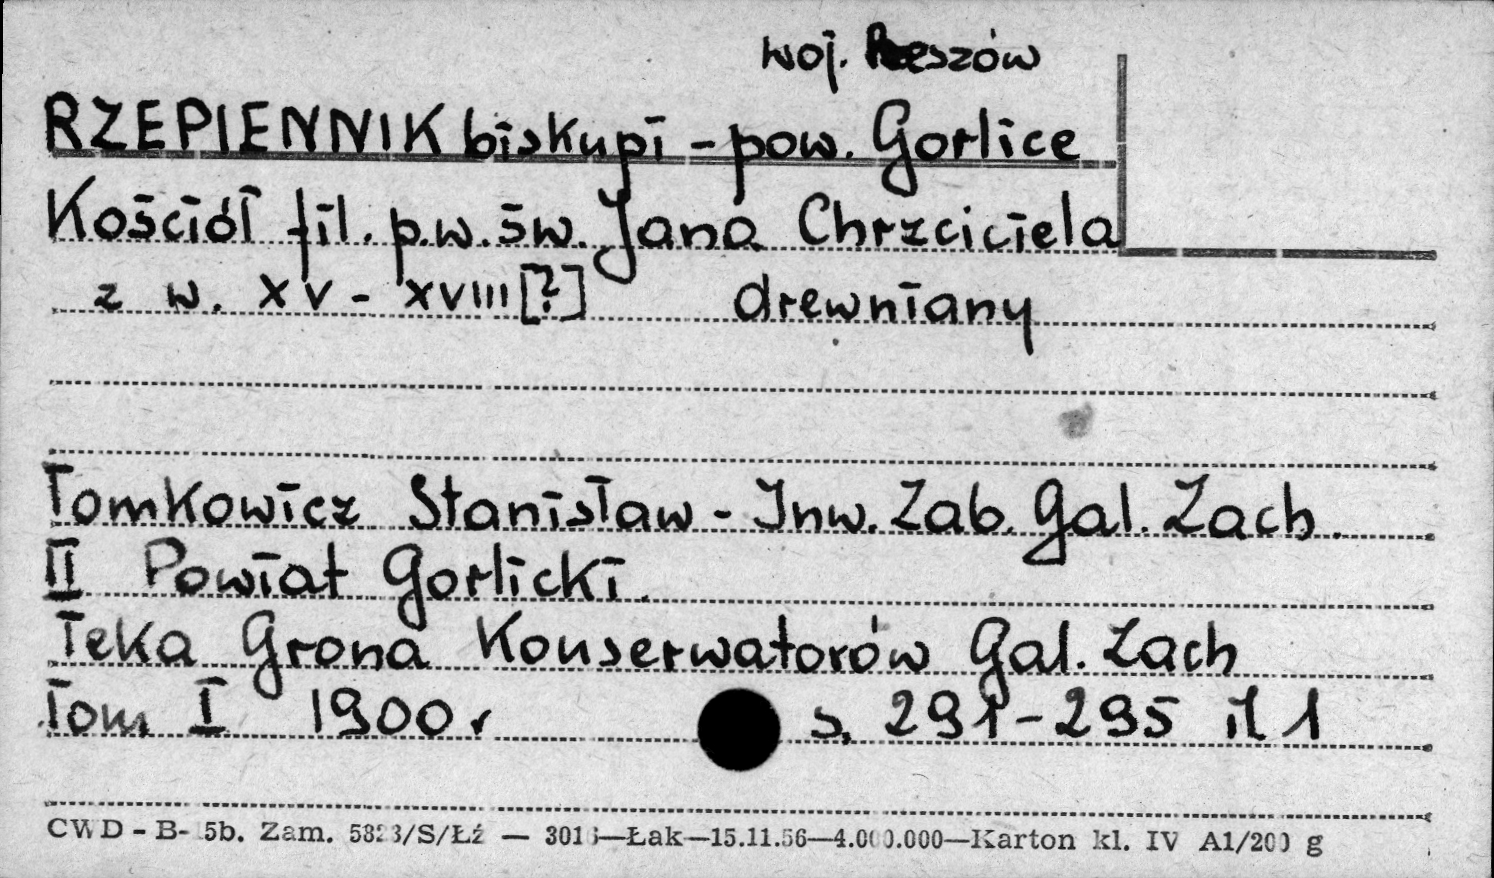 woj. Rzeszów
RZEPIENNIK biskupi - pow. Gorlice
Kościół fil. p.w. św. Jana Chrzciciela
z w. XV - XVIII [?] drewniany
Tomkowicz Stanisław - Inw. Zab. Gal. Zach.
II Powiat Gorlicki.
Teka Grona Konserwatorów Gal. Zach
Tom I 1900 r s. 291-295 il 1
CWD - B- 5b. Zam. 5823/S/Łź — 3016—Łak—15.11.56—4.000.000—Karton kl. IV A1/200 g